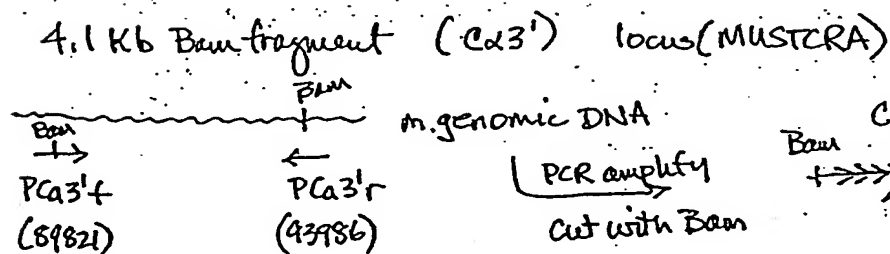 4.1 Kb Bam fragment (Cα3') locus (MUSTCRA)
Bam
m.genomic DNA
Bam
PCa3'f PCa3'r PCR amplify Bam
(89821) (93986) Cut with Bam